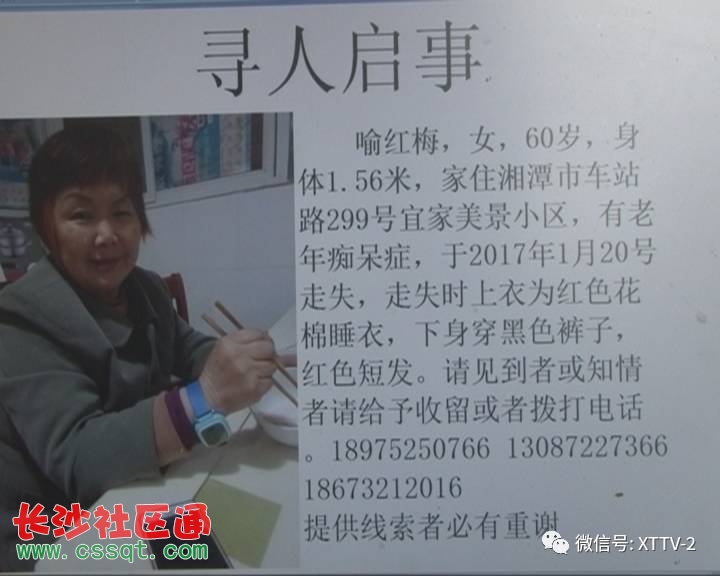 寻人启事
喻红梅，女，60岁，身
体1.56米，家住湘潭市车站
路299号宜家美景小区，有老
年痴呆症，于2017年1月20号
走失，走失时上衣为红色花
棉睡衣，下身穿黑色裤子，
红色短发。请见到者或知情
者请给予收留或者拨打电话
。18975250766 13087227366
18673212016
提供线索者必有重谢
长沙社区通
www.cssqt.com
微信号: XTTV-2